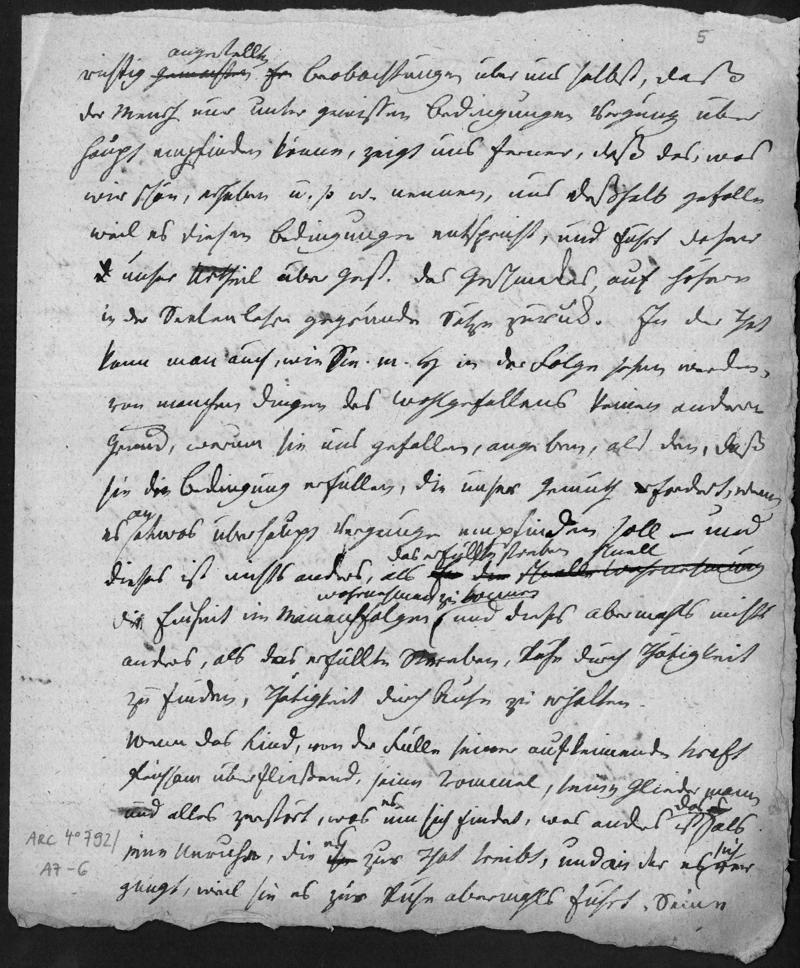 5
angestellte
richtig gemachten Beobachtungen über uns selbst, daß
der Mensch nur unter gewissen Bedingungen Vergnügen über
haupt empfinden könne, zeigt uns ferner, daß das, was
wir schön, erhaben u. s. w. nennen, uns deßhalb gefalle
weil es diesen Bedingungen entspricht, und führt daher
unser Urtheil über des Geschmackes, auf höhere
in der Seelenlehre gegründete Sätze zurück. In der That
kann man auch, wie Sie m. H. in der Folge sehen werden,
von manchen Dingen des Wohlgefallens keinen andern
Grund, warum sie uns gefallen, angeben, als den, daß
sie die Bedingung erfüllen, die unser Gemüth erfordert, wenn
an
es etwas überhaupt Vergnügen empfinden soll — und
das erfüllte Streben schnell
dieses ist nichts anders, als die schnelle Wahrnehmung
wahrnehmen zu können
die Einheit im Manchfaltigen und dieses abermahls nichts
anders, als das erfüllte Streben, Ruhe durch Thätigkeit
zu finden, Thätigkeit durch Ruhe zu erhalten.
Wenn das Kind, von der Fülle seiner aufkeimenden Kraft
gleichsam überfließend, seine Trommel, seine Glieder mann
und alles zerstört, was es um sich findet, was anders ist das als
eine Unruhe, die es zur That treibt, und in der es sich
gnügt, weil sie es zur Ruhe abermahls führt. Seine
ARC 4° 792/
A7-6